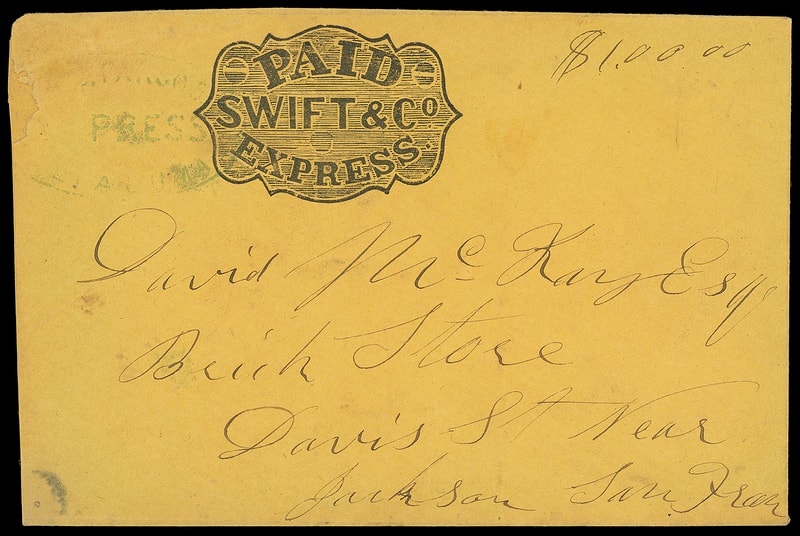 $1.00.00
PAID
SWIFT & Co
EXPRESS.
PRESS
David McKay Esq
Brick Store
Davis St Near
Jackson San Fran